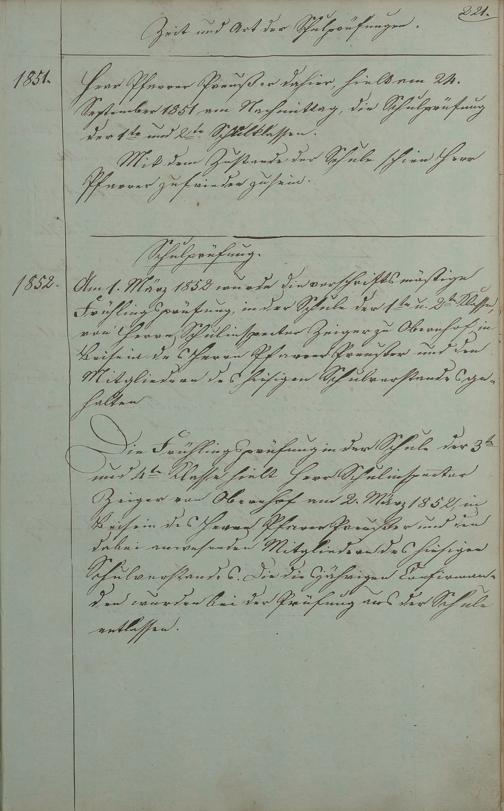 221.
Zeit und Art der Schulprüfungen.
1851. Herr Pfarrer Preußer dahier, hielt am 24.
September 1851, am Nachmittag, die Schulprüfung
der 1te und 2te Schulklassen.
Mit dem Zustande der Schule schien Herr
Pfarrer zufrieden zu sein.
Schulprüfung.
1852. Am 1. März 1852 wurde die vorschriftsmäßige
Frühlingsprüfung, in der Schule der 1te u. 2te Klasse,
von Herrn Schulinspector Zeiger zu Obernhof, in
Beisein des Herrn Pfarrer Preußer und den
Mitgliedern des hiesigen Schulvorstandes ge-
halten
Die Frühlingsprüfung in der Schule der 3te
und 4te Klasse hielt Herr Schulinspector
Zeiger von Obernhof am 2. März 1852, in
Beisein des Herrn Pfarrer Preußer und den
dabei anwesenden Mitgliedern des hiesigen
Schulvorstandes. Die diesjährigen Confirman-
den wurden bei der Prüfung aus der Schule
entlassen.